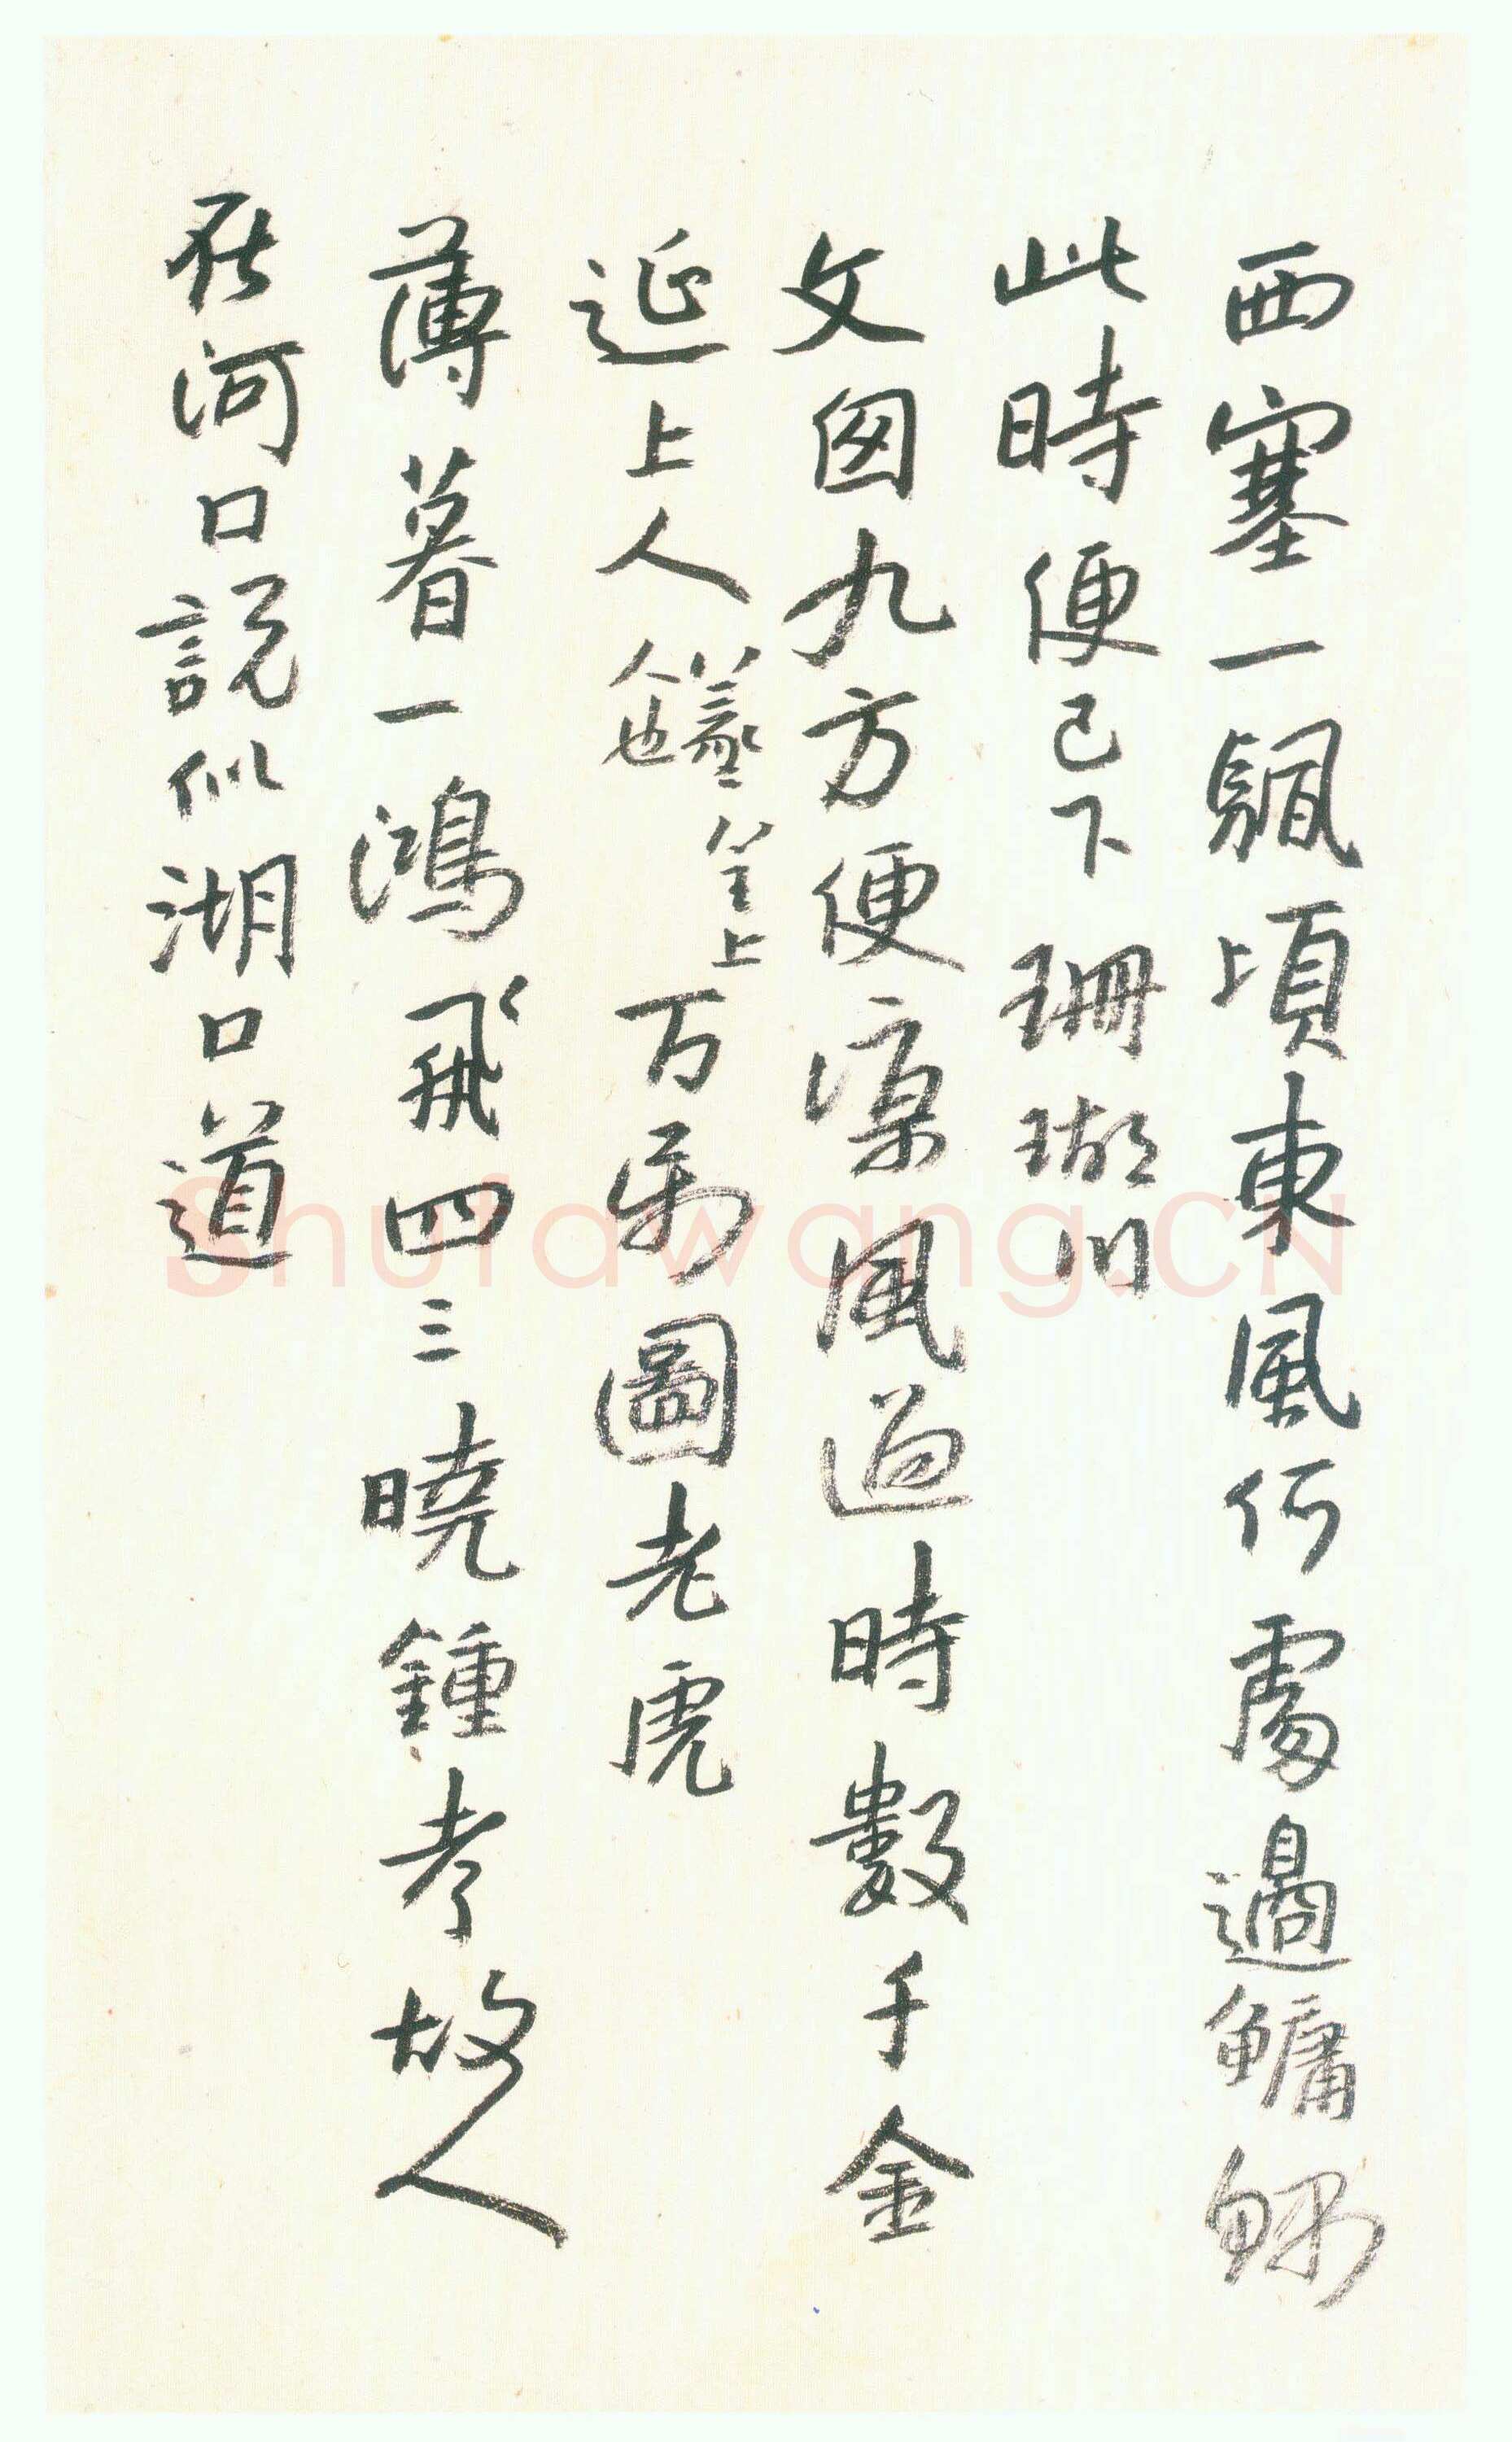 西塞一颿頃上東風何處過鱅鯄
此時便已下珊瑚川
文囱九方便涼風過時數千金
延上人
人也
上
百鳥圖老虎
薄暮一鴻飛四三曉鍾考故人
在河口説似湖口道
Shufawang.CN